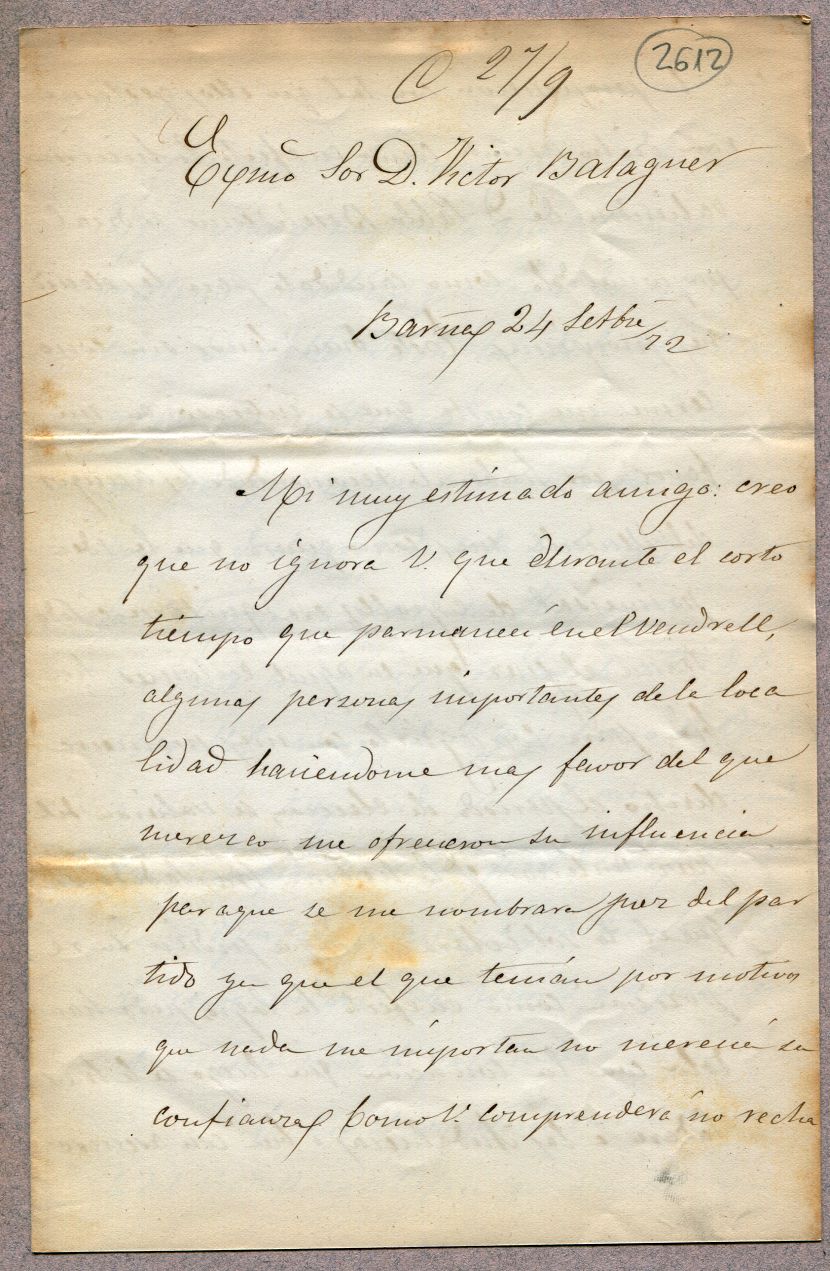 C 27/9
2612
Exmo Sor D. Victor Balaguer
Barna 24 Setbre/72
Mi muy estimado amigo: creo
que no ignora V. que durante el corto
tiempo que permanecí en el Vendrell,
algunas personas importantes de la loca
lidad haciendome mas favor del que
meresco me ofrecieron su influencia
paraque se me nombrara juez del par
tido ya que el que tenian por motivos
que nada me importan no merecia su
confianza. Como V. comprenderá no recha